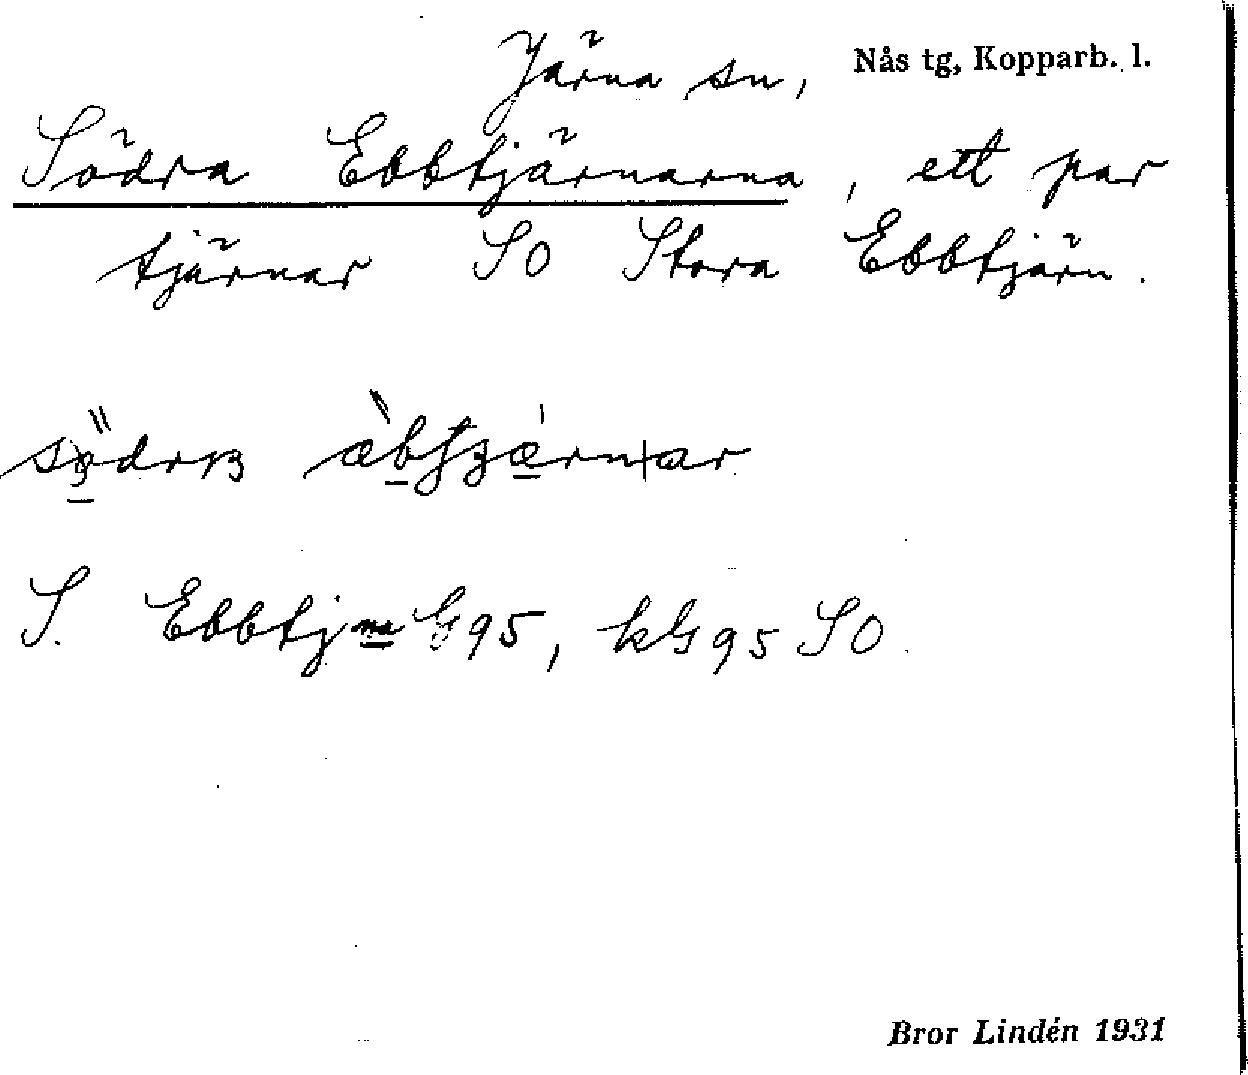 Järna sn, Nås tg, Kopparb. l.
Södra Ebbtjärnarna, ett par
tjärnar SO Stora Ebbtjärn.
S. Ebbtjna G95, kG95 SO.
Bror Lindén 1931